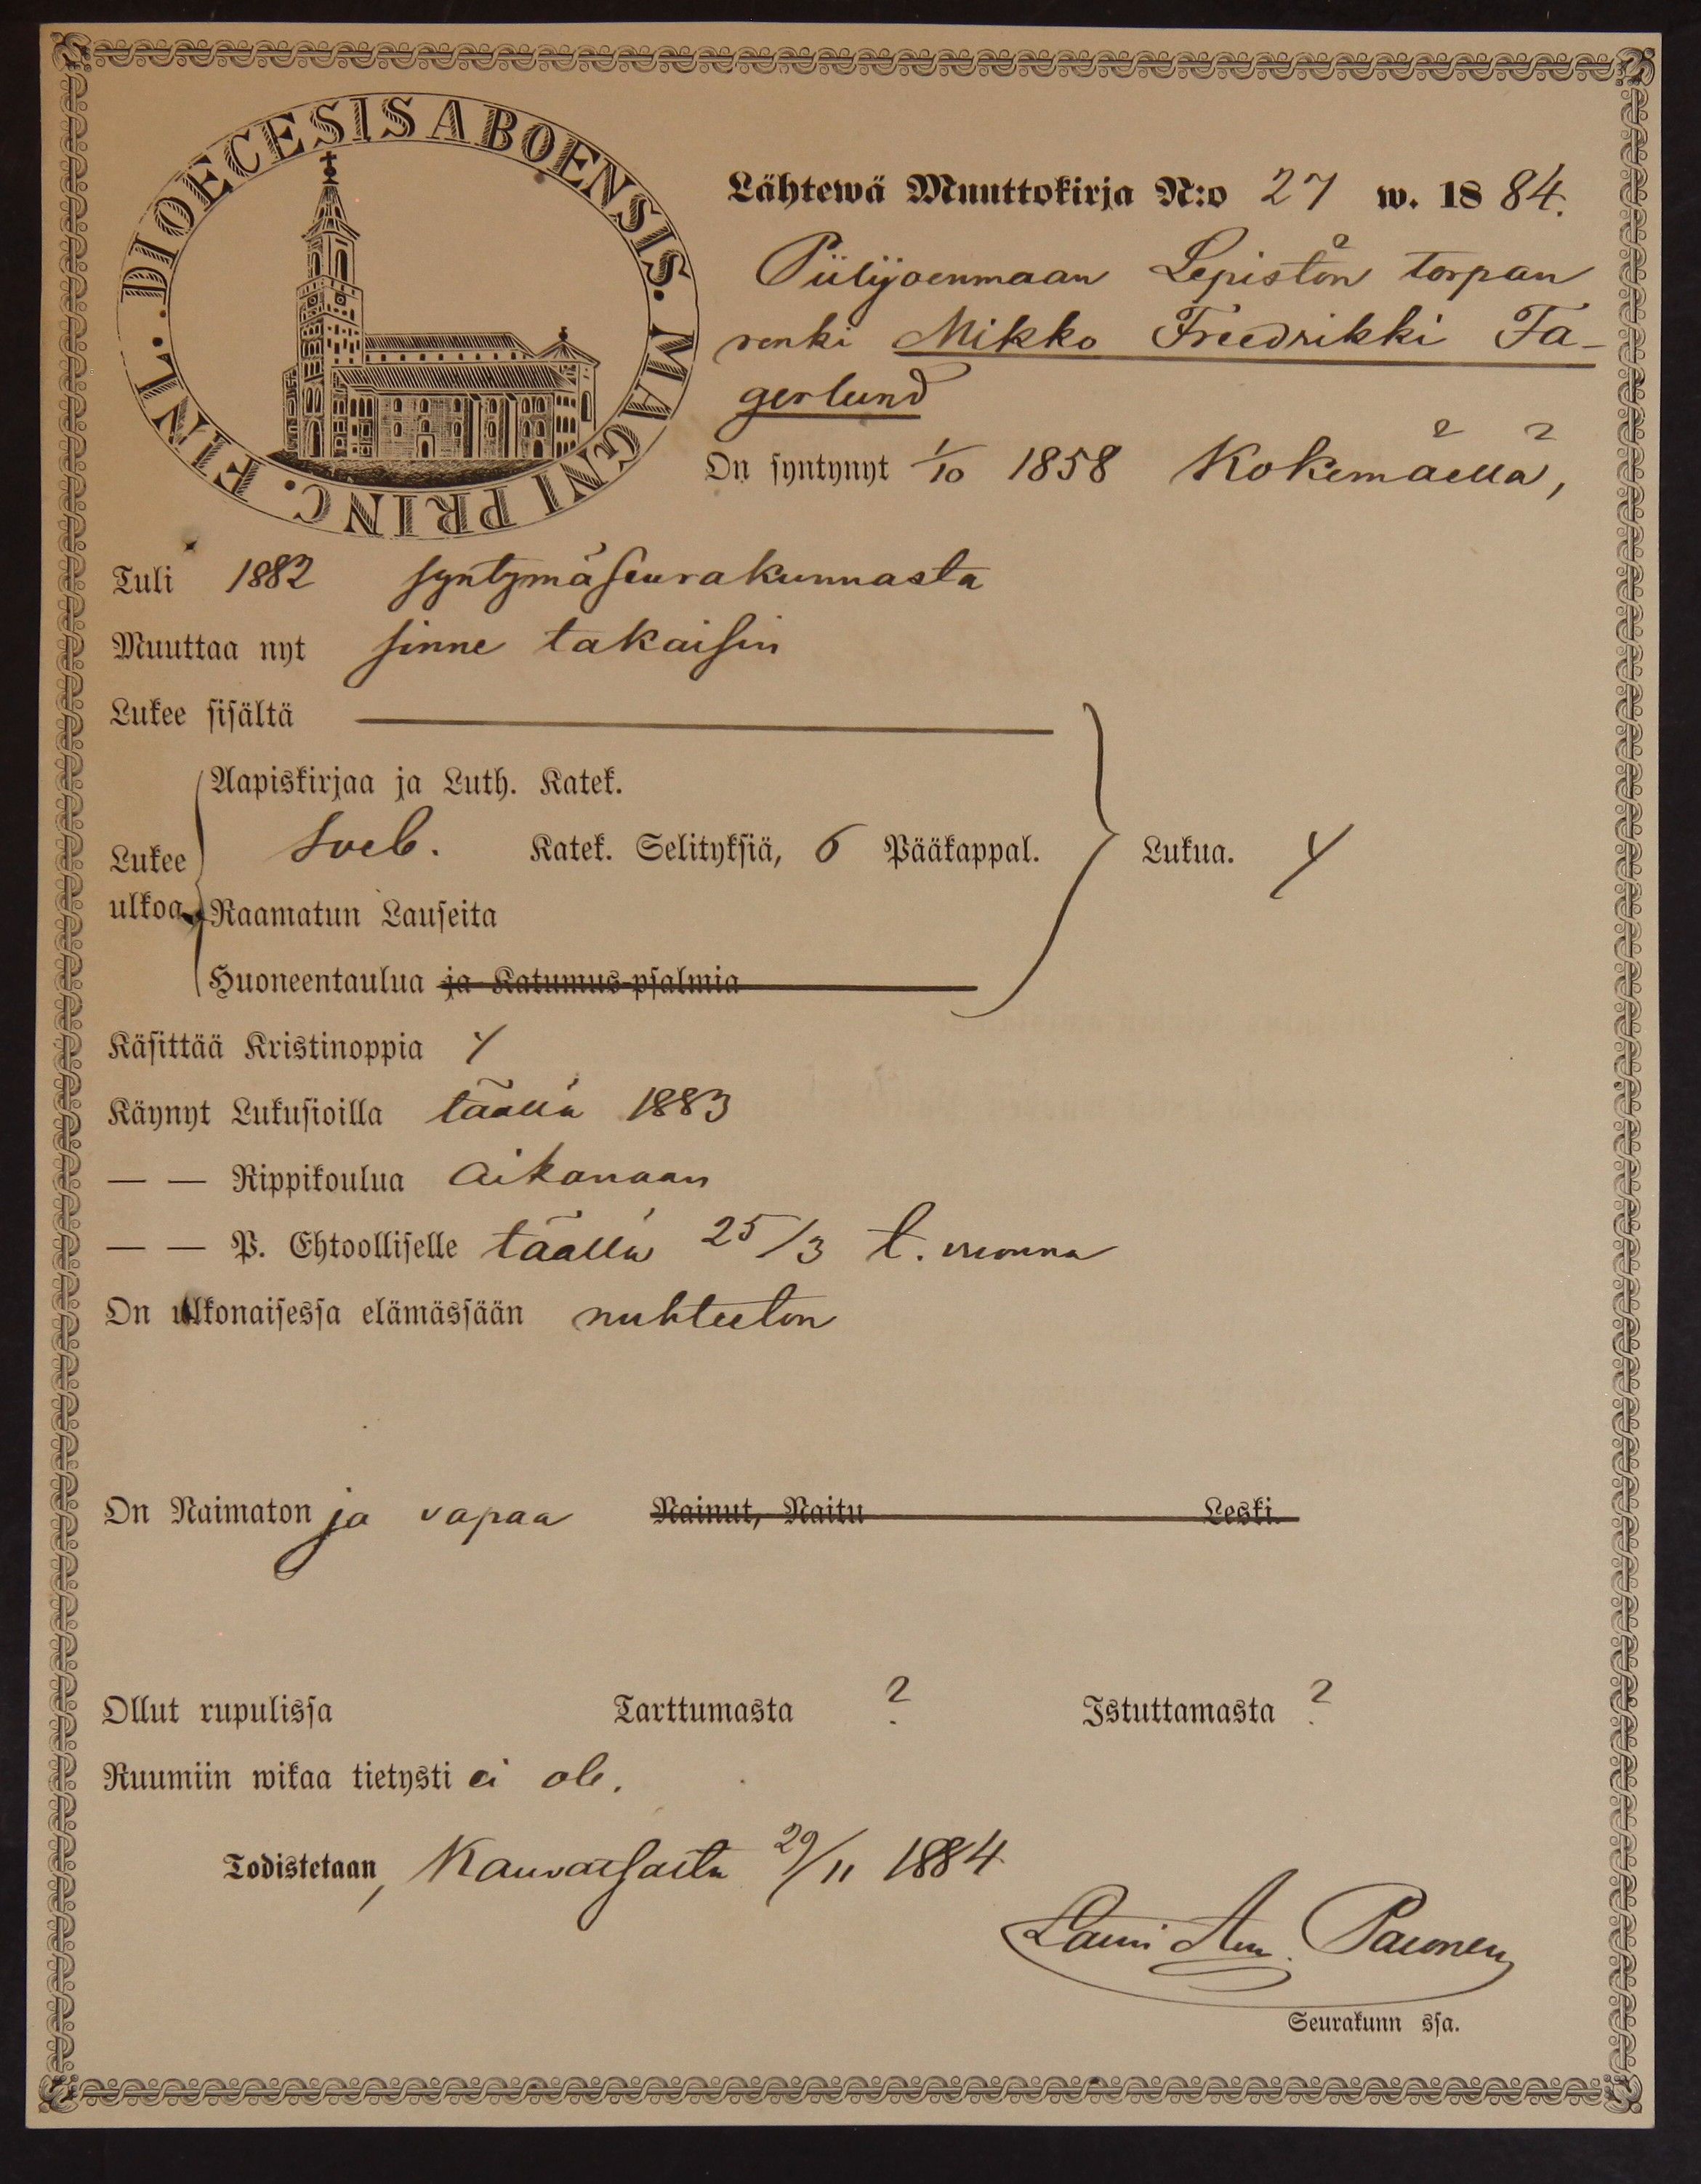 DIOECESIS ABOENSIS. MAGNI PRINC. FINL.
Lähtewä Muuttokirja N:o 27 w. 1884.
Piilijoenmaan Lepistön torpan
renki Mikko Freedrikki Fa-
gerlund
On syntynyt 1/10 1858 Kokemäellä,
Tuli 1882 syntymäseurakunnasta
Muuttaa nyt sinne takaisin
Lukee sisältä
Aapiskirjaa ja Luth. Katek.
Lukee ulkoa
Sveb. Katek. Selityksiä, 6 Pääkappal. Lukua. Y
Raamatun Lauseita
Huoneentaulua ja Katumus-psalmia
Käsittää Kristinoppia Y
Käynyt Lukusioilla täällä 1883
— — Rippikoulua aikanaan
— — P. Ehtoolliselle täällä 25/3 t. vuonna
On ulkonaisessa elämässään nuhteeton
On Naimaton ja vapaa Nainut, Naitu Leski.
Ollut rupulissa Tarttumasta ? Istuttamasta ?
Ruumiin wikaa tietysti ei ole.
Todistetaan, Kauvatsalla 29/11 1884
Paeonen
Seurakunn ssa.